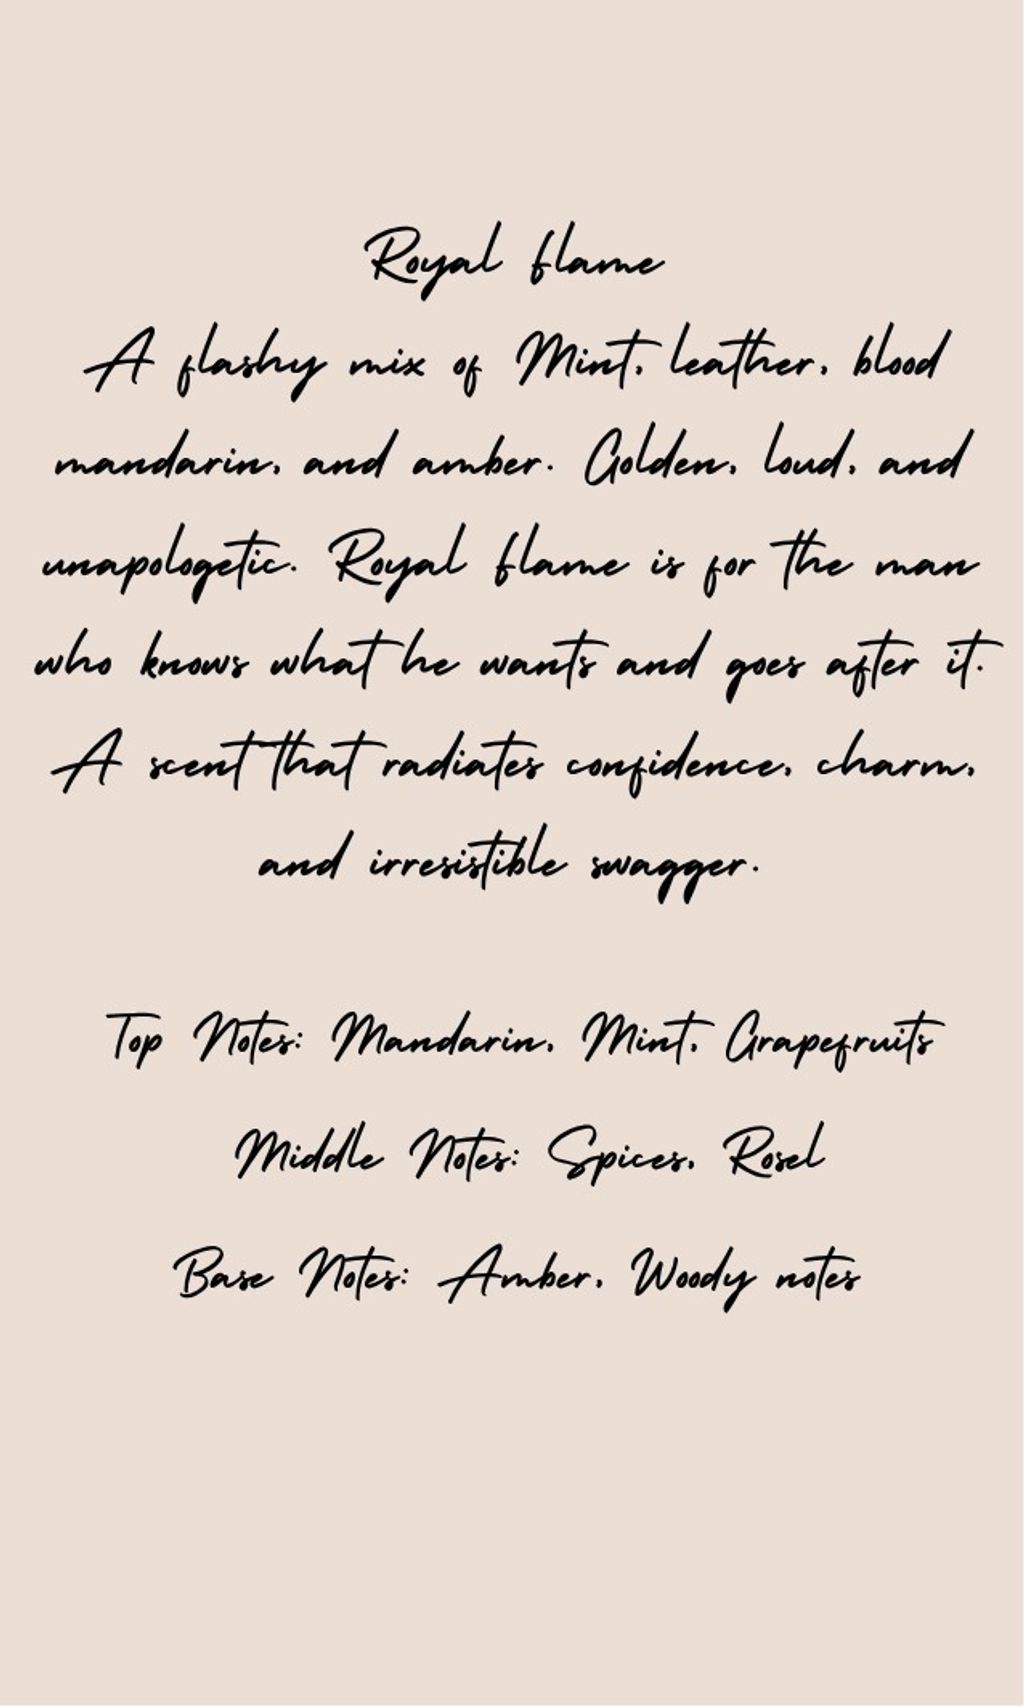 Royal flame
A flashy mix of Mint, leather, blood
mandarin, and amber. Golden, loud, and
unapologetic. Royal flame is for the man
who knows what he wants and goes after it.
A scent that radiates confidence, charm,
and irresistible swagger.
Top Notes: Mandarin, Mint, Grapefruits
Middle Notes: Spices, Rosel
Base Notes: Amber, Woody notes